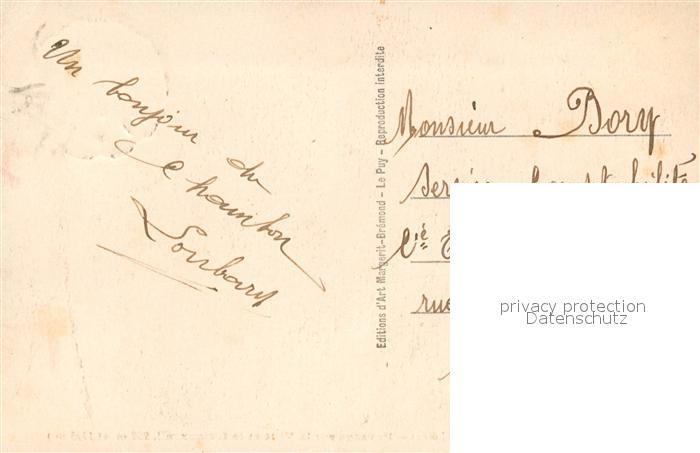 Un
bonjour du
Chambon
Loubary
Editions d'Art Margerit-Brémond - Le Puy - Reproduction interdite
Monsieur Bory
Service Comptabilité
Cié
rue
privacy protection
Datenschutz